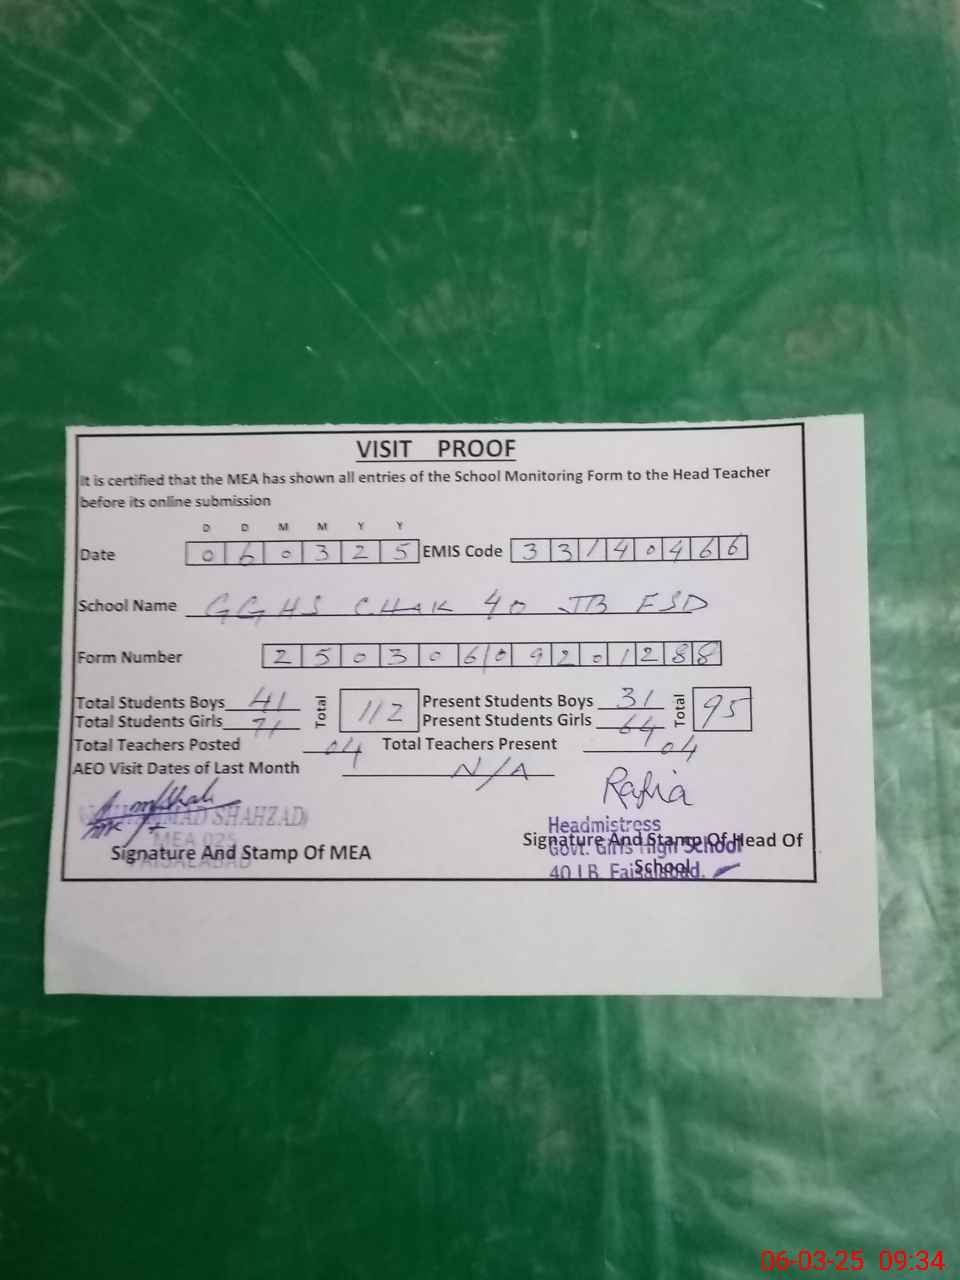 VISIT PROOF
It is certified that the MEA has shown all entries of the School Monitoring Form to the Head Teacher
before its online submission
D D M M Y Y
Date 0 6 0 3 2 5 EMIS Code 3 3 1 4 0 4 6 6
School Name GGHS CHAK 40 JB FSD
Form Number 2 5 0 3 0 6 0 9 2 0 1 2 8 8
Total Students Boys 41 Total 112 Present Students Boys 31 Total 95
Total Students Girls 71 Present Students Girls 64
Total Teachers Posted 04 Total Teachers Present 04
AEO Visit Dates of Last Month N/A
Rafia
SHAHZAD)
MEA 025
FAISALABAD
Signature And Stamp Of MEA
Headmistress
Signature And Stamp Of Head Of
Govt. Girls High School
School
40 J.B. Faisalabad.
06-03-25 09:34